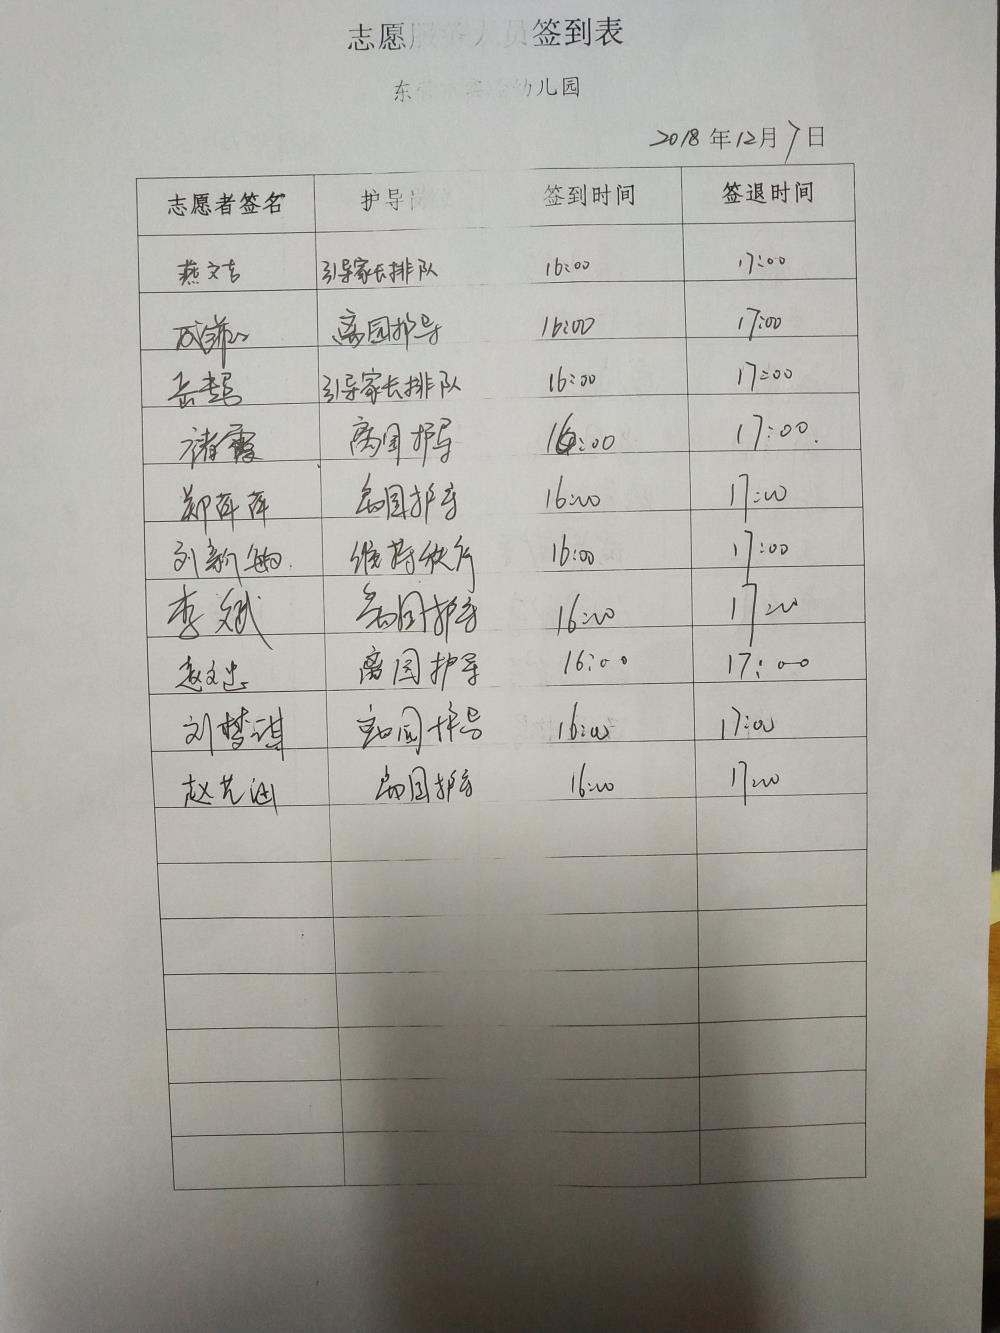 志愿服务人员签到表
东 幼儿园
2018年12月7日
志愿者签名 护导岗 签到时间 签退时间
燕文吉 引导家长排队 16:00 17:00
离园护导 16:00 17:00
引导家长排队 16:00 17:00
褚霞 离园护导 16:00 17:00.
郑萍萍 离园护导 16:00 17:00
刘新敏 维持秩序 16:00 17:00
李斌 离园护导 16:00 17:00
赵文忠 离园护导 16:00 17:00
刘梦琪 离园护导 16:00 17:00
赵艺涵 离园护导 16:00 17:00